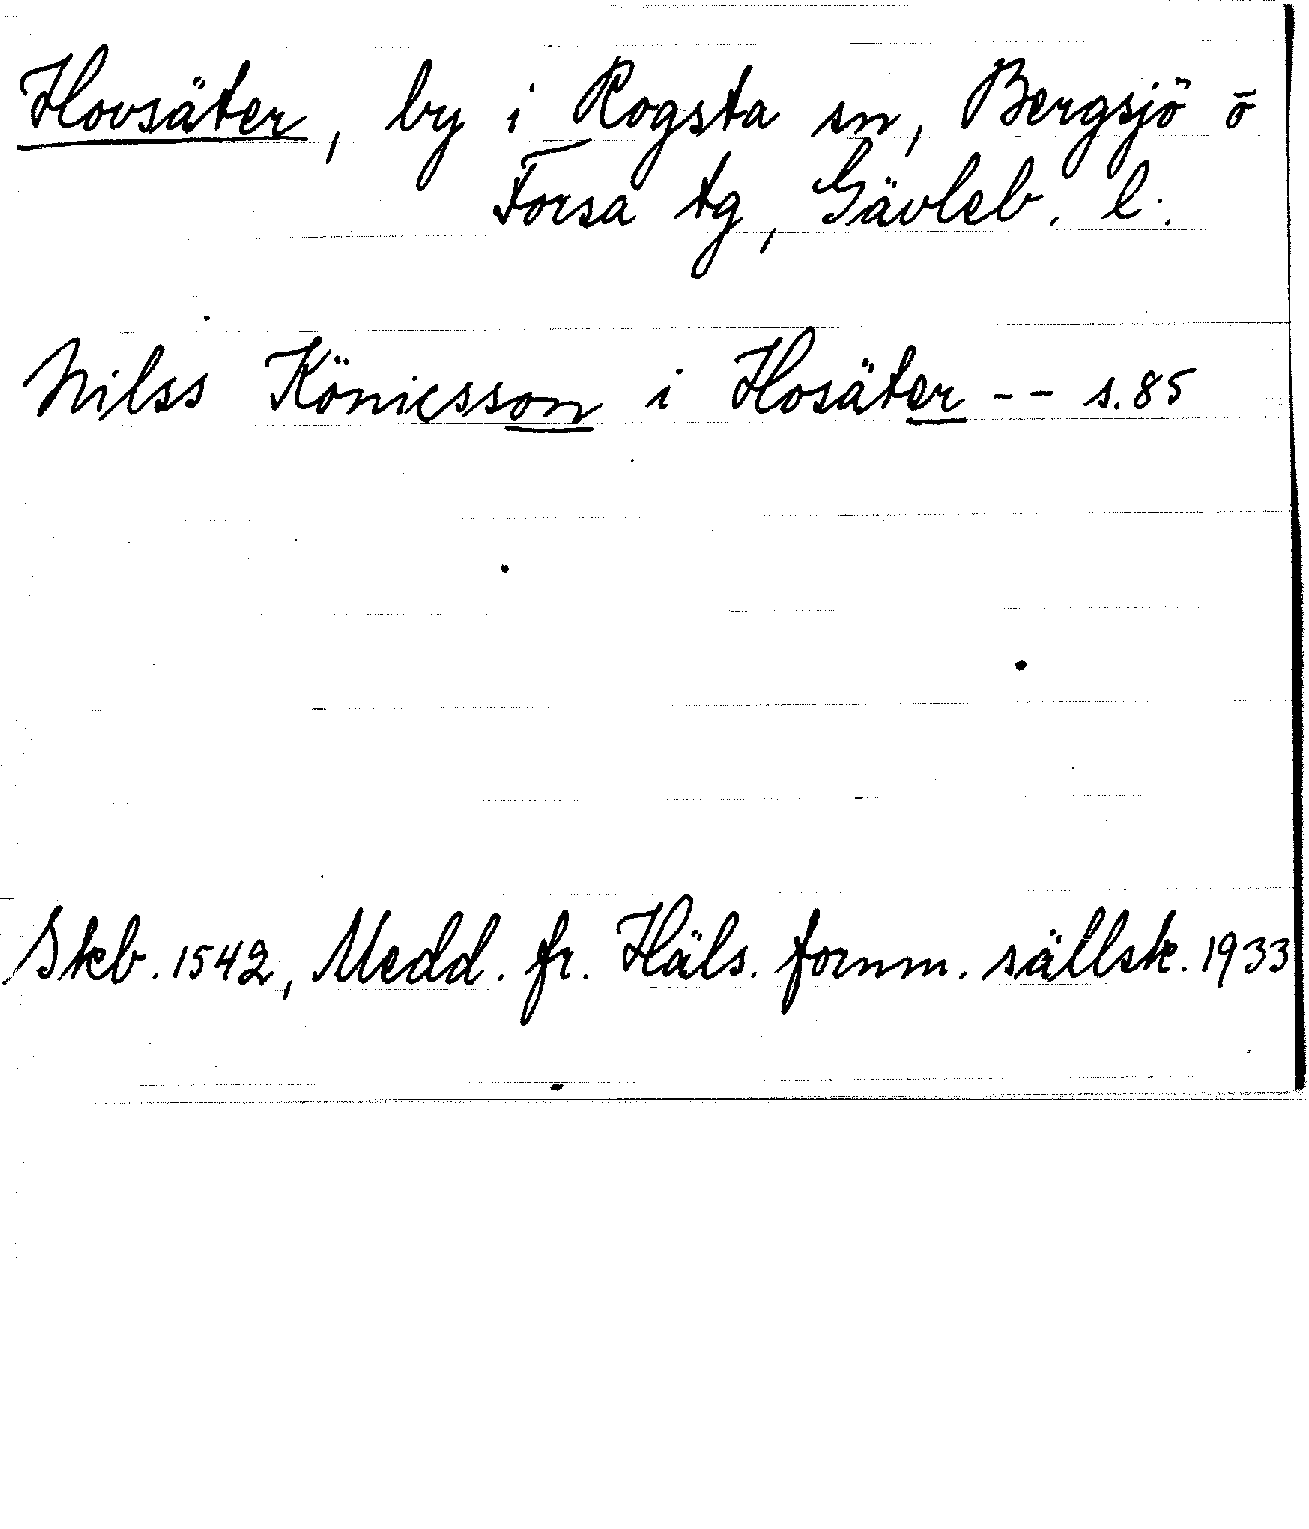 Hovsäter, by i Rogsta sn, Bergsjö o
Forsa tg, Gävleb. l.
Nilss Könicsson i Hosäter -- s.85
Skb. 1542, Medd. fr. Häls. fornm. sällsk. 1933